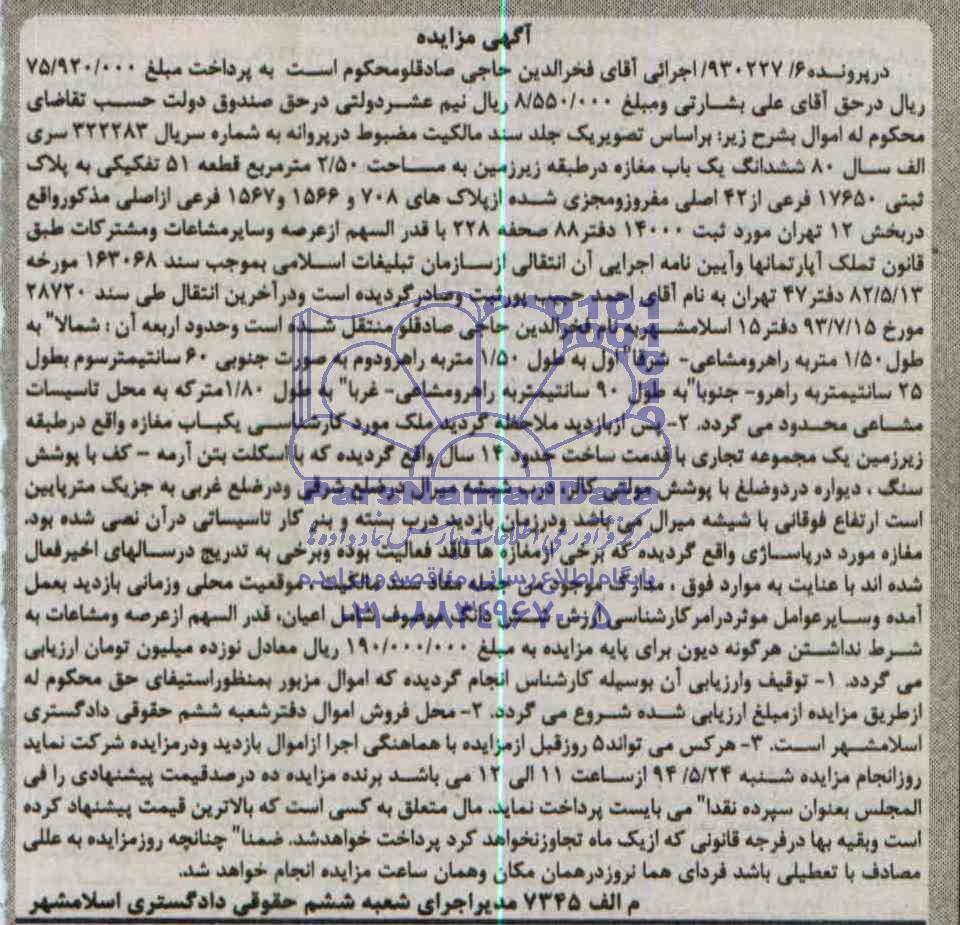 آگهی مزایده
درپرونده۶/ ۹۳۰۲۲۷/ اجرائی آقای فخرالدین حاجی صادقلومحکوم است به پرداخت مبلغ ۷۵/۹۲۰/۰۰۰
ریال درحق آقای علی بشارتی ومبلغ ۸/۵۵۰/۰۰۰ ریال نیم عشردولتی درحق صندوق دولت حسب تقاضای
محکوم له اموال بشرح زیر: براساس تصویریک جلد سند مالکیت مضبوط درپروانه به شماره سریال ۳۲۲۲۸۳ سری
الف سال ۸۰ ششدانگ یک باب مغازه درطبقه زیرزمین به مساحت ۲/۵۰ مترمربع قطعه ۵۱ تفکیکی به پلاک
ثبتی ۱۷۶۵۰ فرعی از۴۲ اصلی مفروزومجزی شده ازپلاک های ۷۰۸ و ۱۵۶۶ و۱۵۶۷ فرعی ازاصلی مذکورواقع
دربخش ۱۲ تهران مورد ثبت ۱۴۰۰۰ دفتر۸۸ صفحه ۲۲۸ با قدر السهم ازعرصه وسایرمشاعات ومشترکات طبق
قانون تملک آپارتمانها وآیین نامه اجرایی آن انتقالی ازسازمان تبلیغات اسلامی بموجب سند ۱۶۳۰۶۸ مورخه
۸۲/۵/۱۳ دفتر۴۷ تهران به نام آقای احمد حبیب وصادرگردیده است ودرآخرین انتقال طی سند ۲۸۷۲۰
مورخ ۹۳/۷/۱۵ دفتر۱۵ اسلامشهربه نام فخرالدین حاجی صادقلو منتقل شده است وحدود اربعه آن : شمالا" به
طول۱/۵۰ متربه راهرومشاعی- شرقا" اول به طول ۱/۵۰ متربه راهرودوم به صورت جنوبی ۶۰ سانتیمترسوم بطول
۲۵ سانتیمتربه راهرو- جنوبا"به طول ۹۰ سانتیمتربه راهرومشاعی- غربا" به طول ۱/۸۰مترکه به محل تاسیسات
مشاعی محدود می گردد. ۲- پس ازبازدید ملاحظه گردید ملک مورد کارشناسی یکباب مغازه واقع درطبقه
زیرزمین یک مجموعه تجاری با قدمت ساخت حدود ۱۴ سال واقع گردیده که با اسکلت بتن آرمه - کف با پوشش
سنگ ، دیواره دردوضلغ با پوشش مولتی کالر، درب شیشه میرال درضلع شرقی ودرضلع غربی به جزیک مترپایین
است ارتفاع فوقانی با شیشه میرال می باشد ودرزمان بازدید درب بسته و بنر کار تاسیساتی درآن نصی شده بود.
مغازه مورد درپاساژی واقع گردیده که برخی ازمغازه ها فاقد فعالیت بوده وبرخی به تدریج درسالهای اخیرفعال
شده اند با عنایت به موارد فوق ، مدارک موجودمن جمله مفاد سند مالکیت ، موقعیت محلی وزمانی بازدید بعمل
آمده وسایرعوامل موثردرامرکارشناسی ارزش شش دانگ موصوف شامل اعیان، قدر السهم ازعرصه ومشاعات به
شرط نداشتن هرگونه دیون برای پایه مزایده به مبلغ ۱۹۰/۰۰۰/۰۰۰ ریال معادل نوزده میلیون تومان ارزیابی
می گردد. ۱- توقیف وارزیابی آن بوسیله کارشناس انجام گردیده که اموال مزبور بمنظوراستیفای حق محکوم له
ازطریق مزایده ازمبلغ ارزیابی شده شروع می گردد. ۲- محل فروش اموال دفترشعبه ششم حقوقی دادگستری
اسلامشهر است. ۳- هرکس می تواند۵ روزقبل ازمزایده با هماهنگی اجرا ازاموال بازدید ودرمزایده شرکت نماید
روزانجام مزایده شنبه ۹۴/۵/۲۴ ازساعت ۱۱ الی ۱۲ می باشد برنده مزایده ده درصدقیمت پیشنهادی را فی
المجلس بعنوان سپرده نقدا" می بایست پرداخت نماید. مال متعلق به کسی است که بالاترین قیمت پیشنهاد کرده
است وبقیه بها درفرجه قانونی که ازیک ماه تجاوزنخواهد کرد پرداخت خواهدشد. ضمنا" چنانچه روزمزایده به عللی
مصادف با تعطیلی باشد فردای هما نروزدرهمان مکان وهمان ساعت مزایده انجام خواهد شد.
م الف ۷۳۴۵ مدیراجرای شعبه ششم حقوقی دادگستری اسلامشهر
ParsNamadData
مرکز فرآوری اطلاعات پارس نماد داده ها
پایگاه اطلاع رسانی مناقصه و مزایده
۰۲۱-۸۸۳۴۹۶۷۰-۵